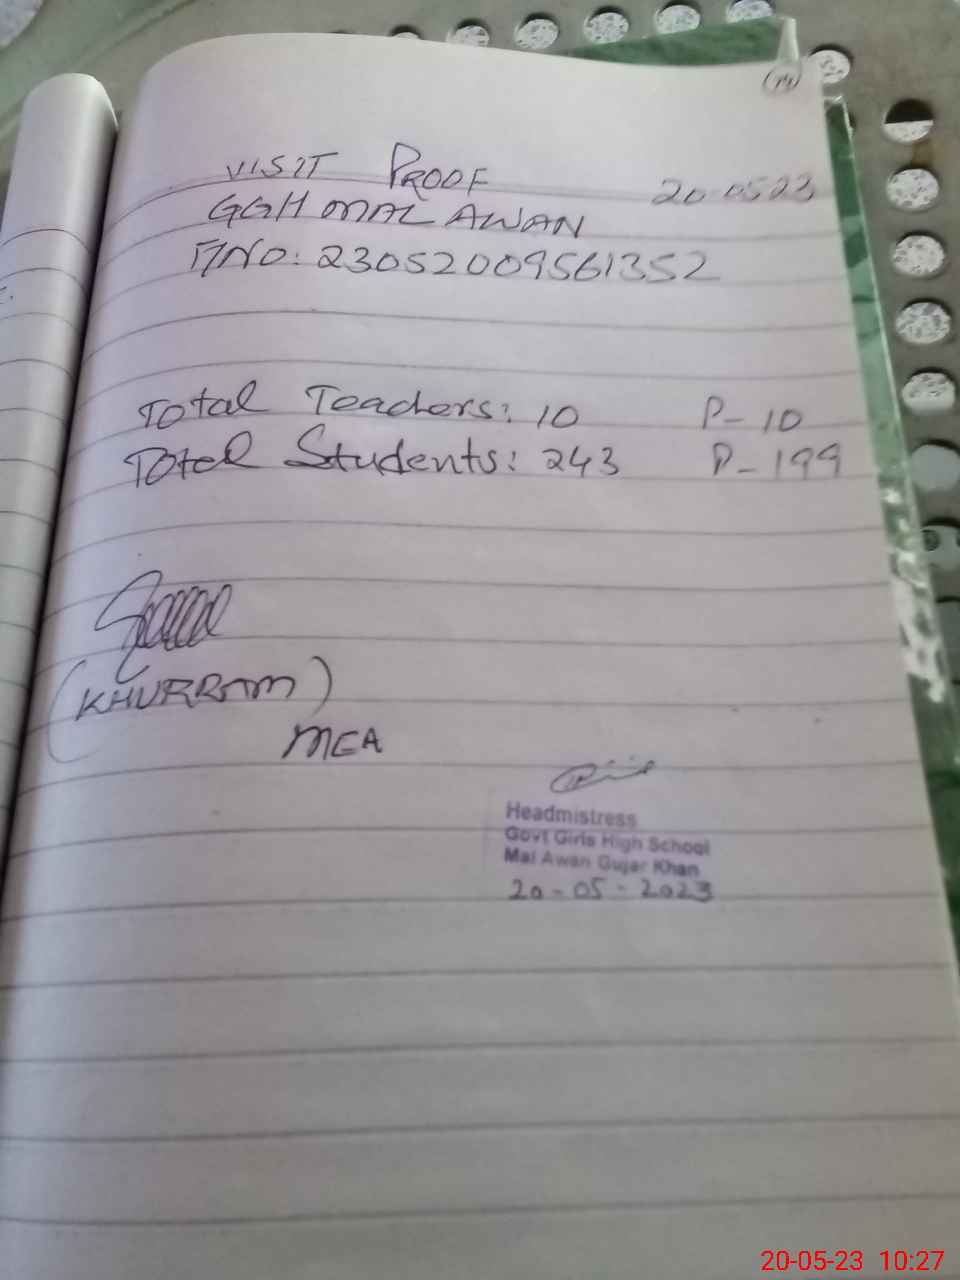 VISIT PROOF 20-05-23
GGH MAL AWAN
F/NO: 23052009561352
Total Teachers: 10 P-10
Total Students: 243 P-199
(KHURRAM)
MEA
Headmistress
Govt Girls High School
Mal Awan Gujar Khan
20-05-2023
20-05-23 10:27